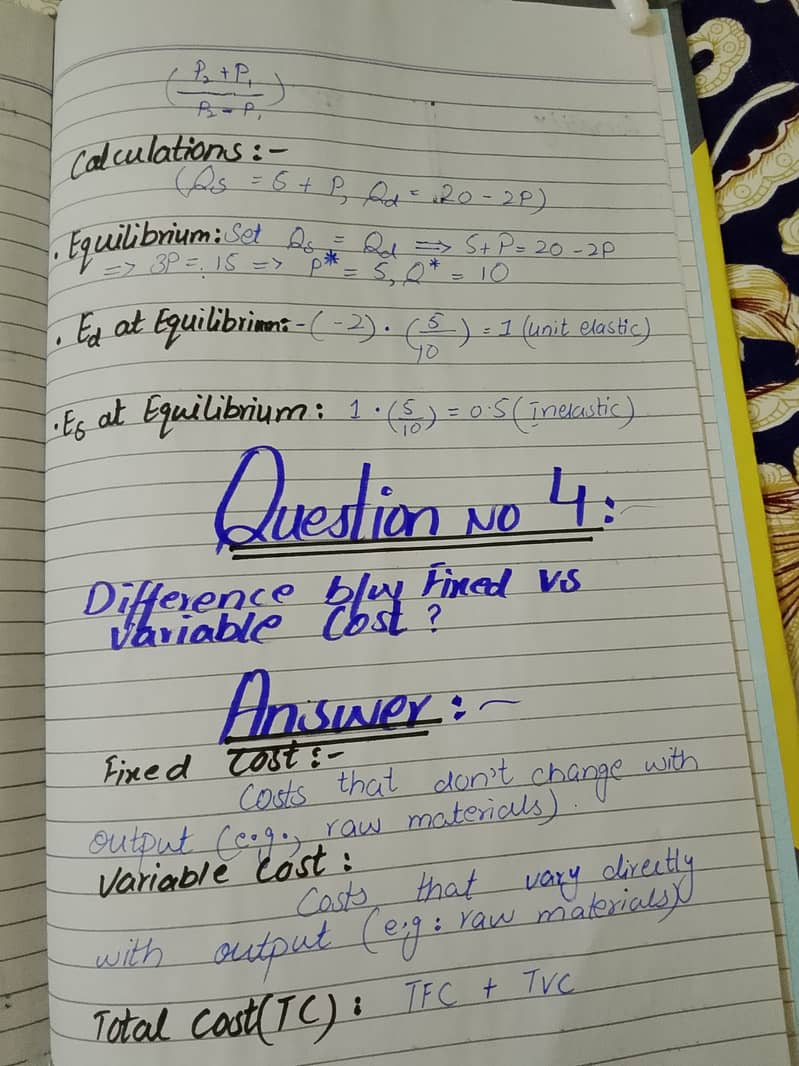 ( P₂ + P₁
P₂ - P₁ )
Calculations :-
(Qs = 5 + P, Qd = 20 - 2P)
. Equilibrium: Set Qs = Qd => 5 + P = 20 - 2P
=> 3P = 15 => P* = 5, Q* = 10
. Ed at Equilibrium: - (-2) . (5/10) = 1 (unit elastic)
. Es at Equilibrium: 1 . (5/10) = 0.5 (Inelastic)
Question No 4 :
Difference b/w Fixed vs
Variable Cost ?
Answer :-
Fixed Cost :-
Costs that don't change with
output (e.g., raw materials).
Variable Cost :
Costs that vary directly
with output (e.g : raw materials)
Total Cost(TC) : TFC + TVC